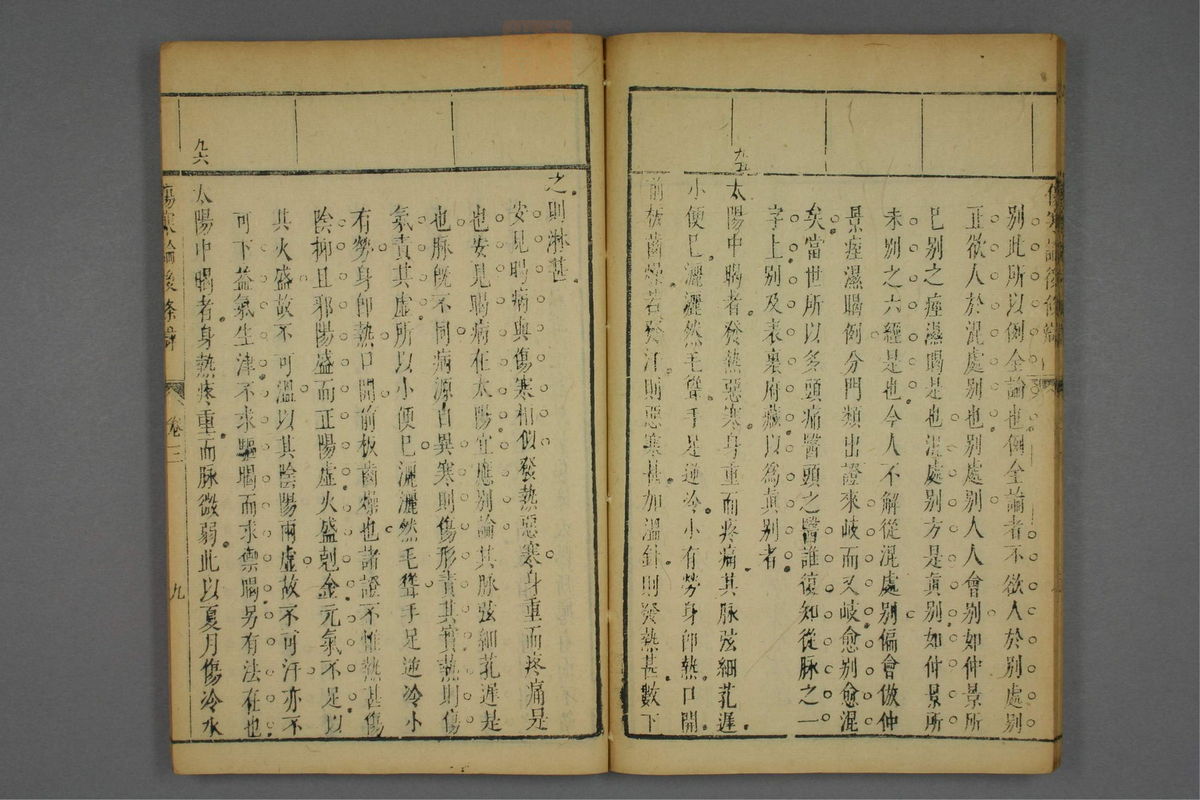 傷寒論後條辯
別此所以例全論也例全論者不欲人於別處別
正欲人於混處別也別處別人人會別如仲景所
已別之痙濕暍是也混處別方是真別如仲景所
未別之六經是也今人不解從混處別偏會倣仲
景痙濕暍例分門類出證來岐而又岐愈別愈混
矣當世所以多頭痛醫頭之醫誰復知從脉之一
字上別及表裏府藏以爲眞別者
九五
太陽中暍者發熱惡寒身重而疼痛其脉弦細芤遲
小便已灑灑然毛聳手足逆冷小有勞身即熱口開
前板齒燥若發汗則惡寒甚加溫針則發熱甚數下
之則淋甚
安見暍病與傷寒相似發熱惡寒身重而疼痛是
也安見暍病在太陽宜應別論其脉弦細芤遲是
也脉旣不同病源自異寒則傷形責其實熱則傷
氣責其虛所以小便已灑灑然毛聳手足逆冷小
有勞身即熱口開前板齒燥也諸證不惟熱甚傷
陰抑且邪陽盛而正陽虛火盛剋金元氣不足以
其火盛故不可溫以其陰陽兩虛故不可汗亦不
可下益氣生津不求驅暍而求禦暍另有法在也
九六
太陽中暍者身熱疼重而脉微弱此以夏月傷冷水
傷寒論後條辯 卷三 九